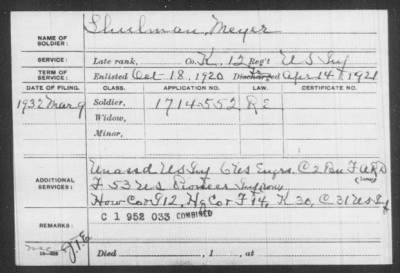 NAME OF SOLDIER: Shulman, Meyer
SERVICE: Late rank, Co. K, 12 Reg't U S Inf
TERM OF SERVICE: Enlisted Oct 18, 1920 Discharged Apr 14, 1921
DATE OF FILING. CLASS. APPLICATION NO. LAW. CERTIFICATE NO.
1932 Mar 9 Soldier, 1714552
Widow,
Minor,
ADDITIONAL SERVICES: Unassd US Inf 6 US Engrs. C 2 Bn F
F 53 US Pioneer Inf
How Co 12, Hq Co F 14, K 30, C 31 US Inf
REMARKS: C 1 952 033 COMBINED
Died , 1 , at